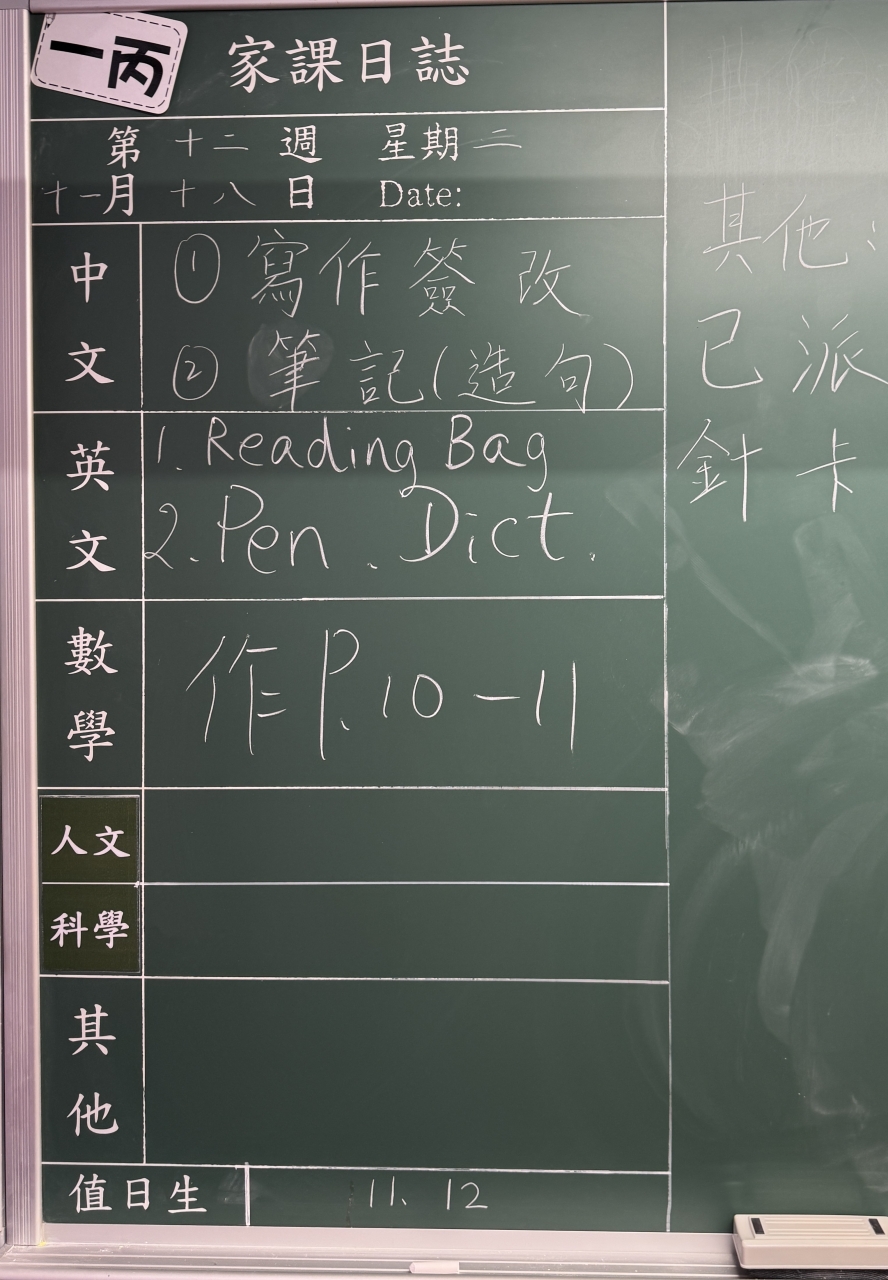 一丙
家課日誌
第 十二 週 星期 二
十一月 十八 日 Date:
中文
① 寫作簽改
② 筆記(造句)
英文
1. Reading Bag
2. Pen. Dict.
數學
作 P.10-11
人文
科學
其他
值日生 11、12
其他:
已派
針卡